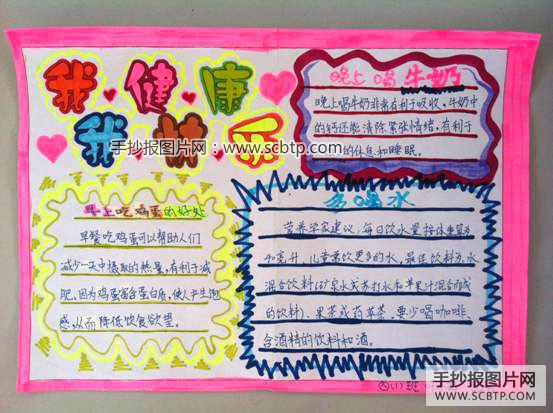 我健康
我快乐
手抄报图片网：www.scbtp.com
晚上喝牛奶
晚上喝牛奶非常有利于吸收，牛奶中
的钙还能清除紧张情绪，有利于
的休息和睡眠。
早上吃鸡蛋的好处
早餐吃鸡蛋可以帮助人们
减少一天中摄取的热量，有利于减
肥，因为鸡蛋富含蛋白质，使人产生饱
感，从而降低饮食欲望。
多喝水
营养学家建议，每日饮水量按体重
毫升，儿童需饮更多的水，最佳饮料为水
混合饮料（矿泉水或苏打水和苹果汁混合而成
的饮料）、果茶或药草茶，要少喝咖啡、
含酒精的饮料和酒。
四(1)班
手抄报图片网
WWW.SCBTP.COM